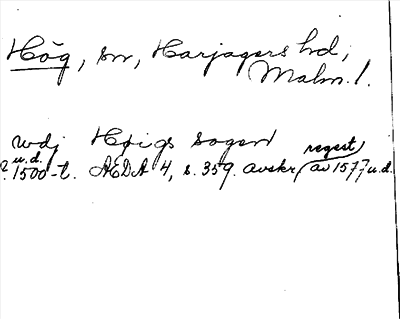 Hög, sn, Harjagers hd,
Malm. l.
wdj Høigs sogen
u.d. regest
? 1500-t. ÆDA 4, s. 359. avskr. (av 1577 u.d.